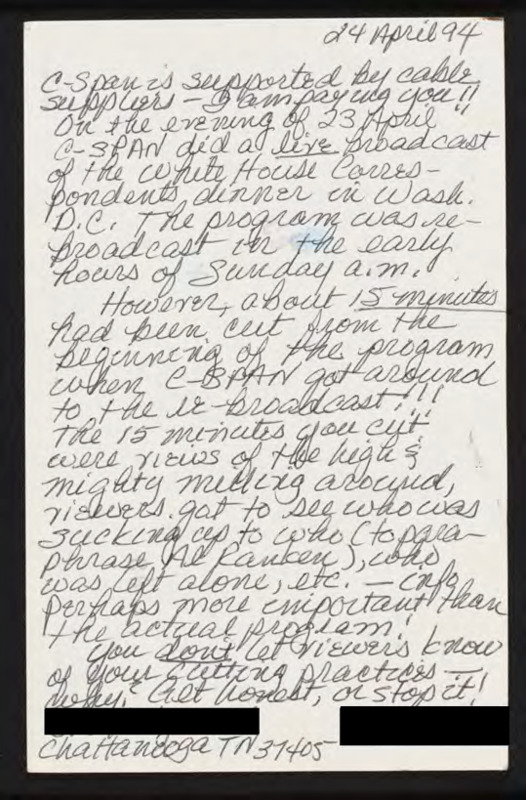 24 April 94
C-Span is supported by cable
suppliers — I am paying you!!
On the evening of 23 April
C-SPAN did a live broadcast
of the White House Corres-
pondents dinner in Wash.
D.C. The program was re-
broadcast in the early
hours of Sunday a.m.
However, about 15 minutes
had been cut from the
beginning of the program
when C-SPAN got around
to the re-broadcast!!!
The 15 minutes you cut
were views of the high &
mighty milling around,
viewers got to see who was
sucking up to who (to para-
phrase Al Franken), who
was left alone, etc. — info
perhaps more important than
the actual program!
You don't let viewers know
of your cutting practices —
why? Get honest, or stop it!
Chattanooga TN 37405